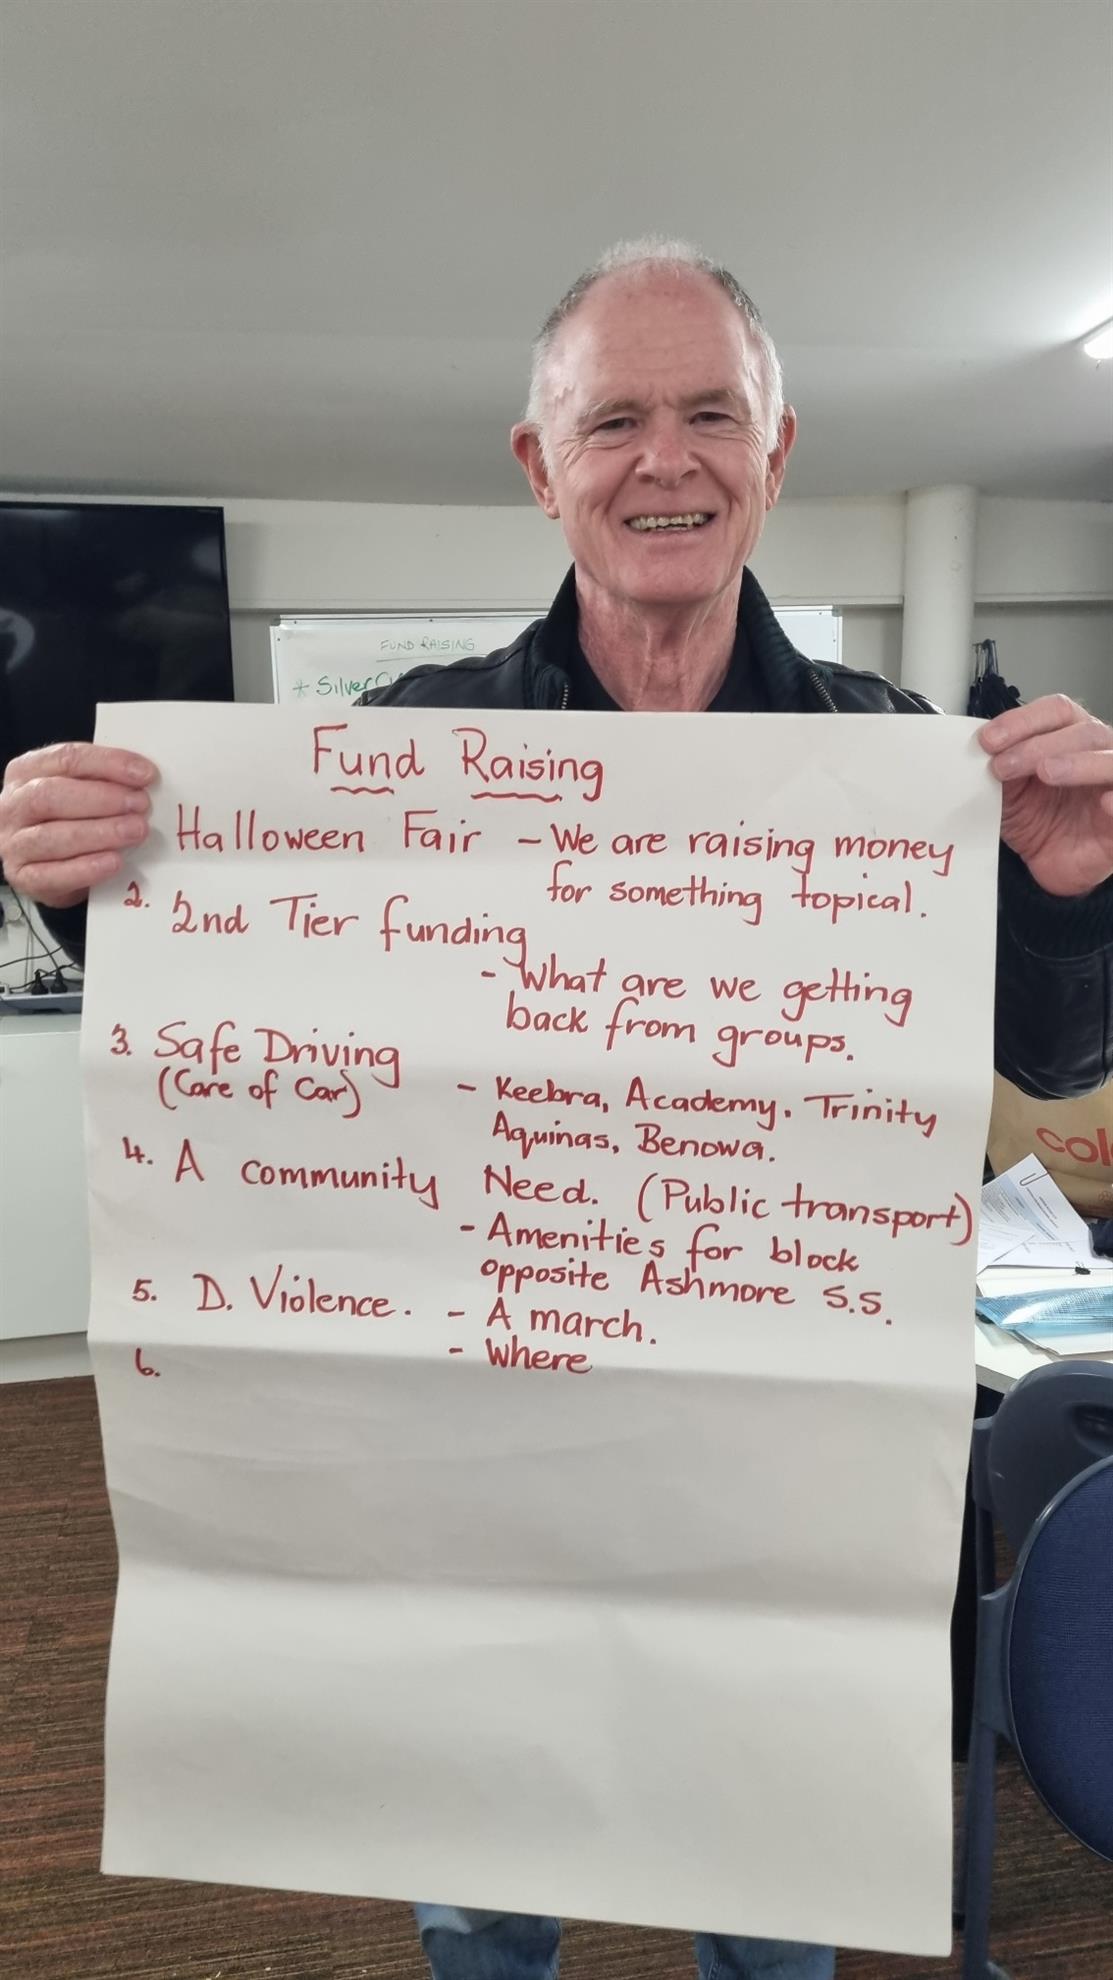 FUND RAISING
* Silver
Fund Raising
Halloween Fair - We are raising money
for something topical.
2. 2nd Tier funding
- What are we getting
back from groups.
3. Safe Driving
(Care of Car)
- Keebra, Academy. Trinity
Aquinas, Benowa.
4. A community Need. (Public transport)
- Amenities for block
opposite Ashmore S.S.
5. D. Violence. - A march.
- Where
6.
col